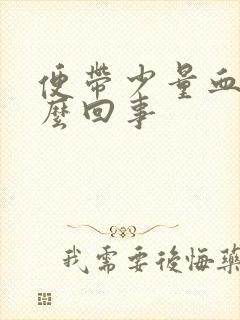 便帶少量血
麼回事
我需要後悔藥